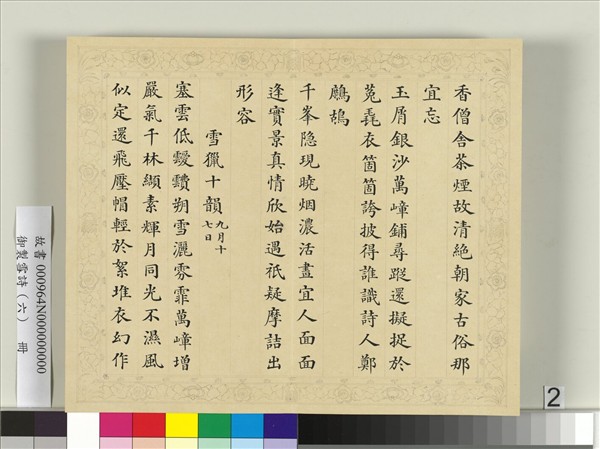 香僧舍茶煙故清絶朝家古俗那
宜忘
玉屑銀沙萬嶂鋪尋蹤還擬捉於
菟毳衣箇箇誇披得誰識詩人鄭
鷓鴣
千峯隐現曉烟濃活畫宜人面面
逢實景真情欣始遇祇疑摩詰出
形容
雪獵十韻九月十七日
塞雲低靉靆朔雪灑雰霏萬嶂增
嚴氣千林纈素輝月同光不濕風
似定還飛壓帽輕於絮堆衣幻作
故書 000964N000000000
御製雪詩(六) 冊
2